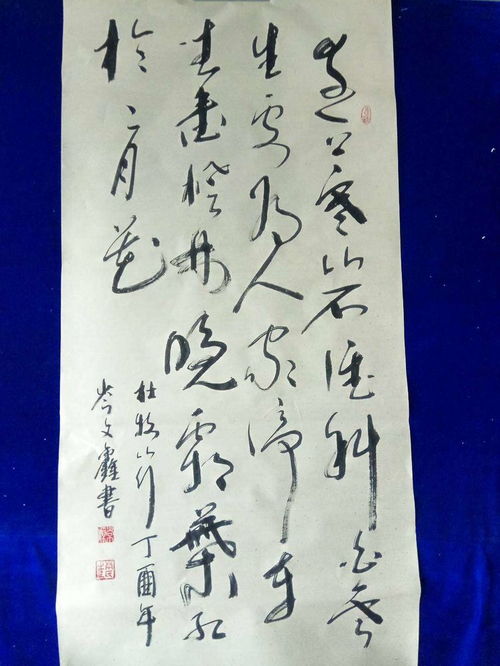 遠上寒山石徑斜白雲
生處有人家停車
坐愛楓林晚霜葉紅
於二月花
杜牧山行丁酉年
岑文書